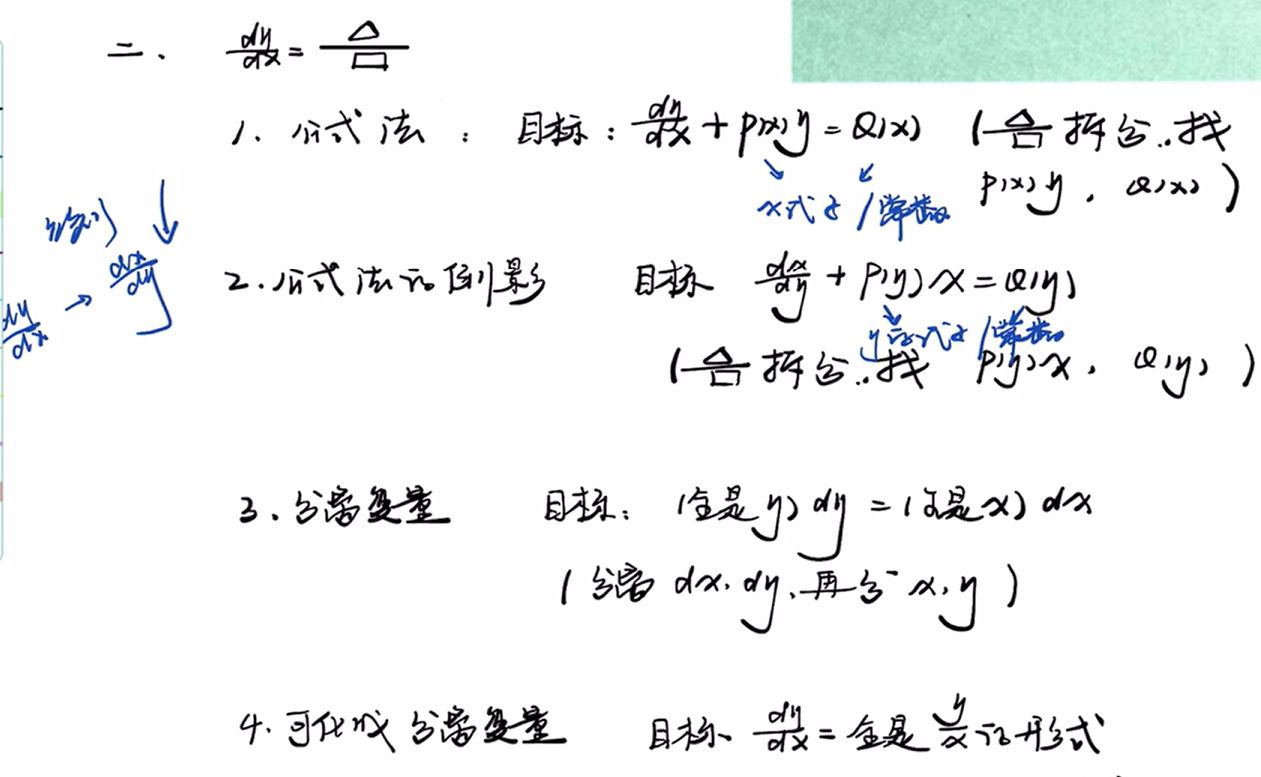 二、 dy/dx = △/□
1. 公式法：目标：dy/dx + P(x)y = Q(x) (△/□ 拆分..找
P(x)y, Q(x))
x式子/常数
dx/dy
2. 公式法的倒影 目标 dx/dy + P(y)x = Q(y)
dy/dx →
y的式子/常数
(△/□ 拆分..找 P(y)x, Q(y))
3. 分离变量 目标：(全是y)dy = (全是x)dx
(分离dx.dy.再分x.y)
4. 可化成分离变量 目标、dy/dx = 全是 y/x 的形式